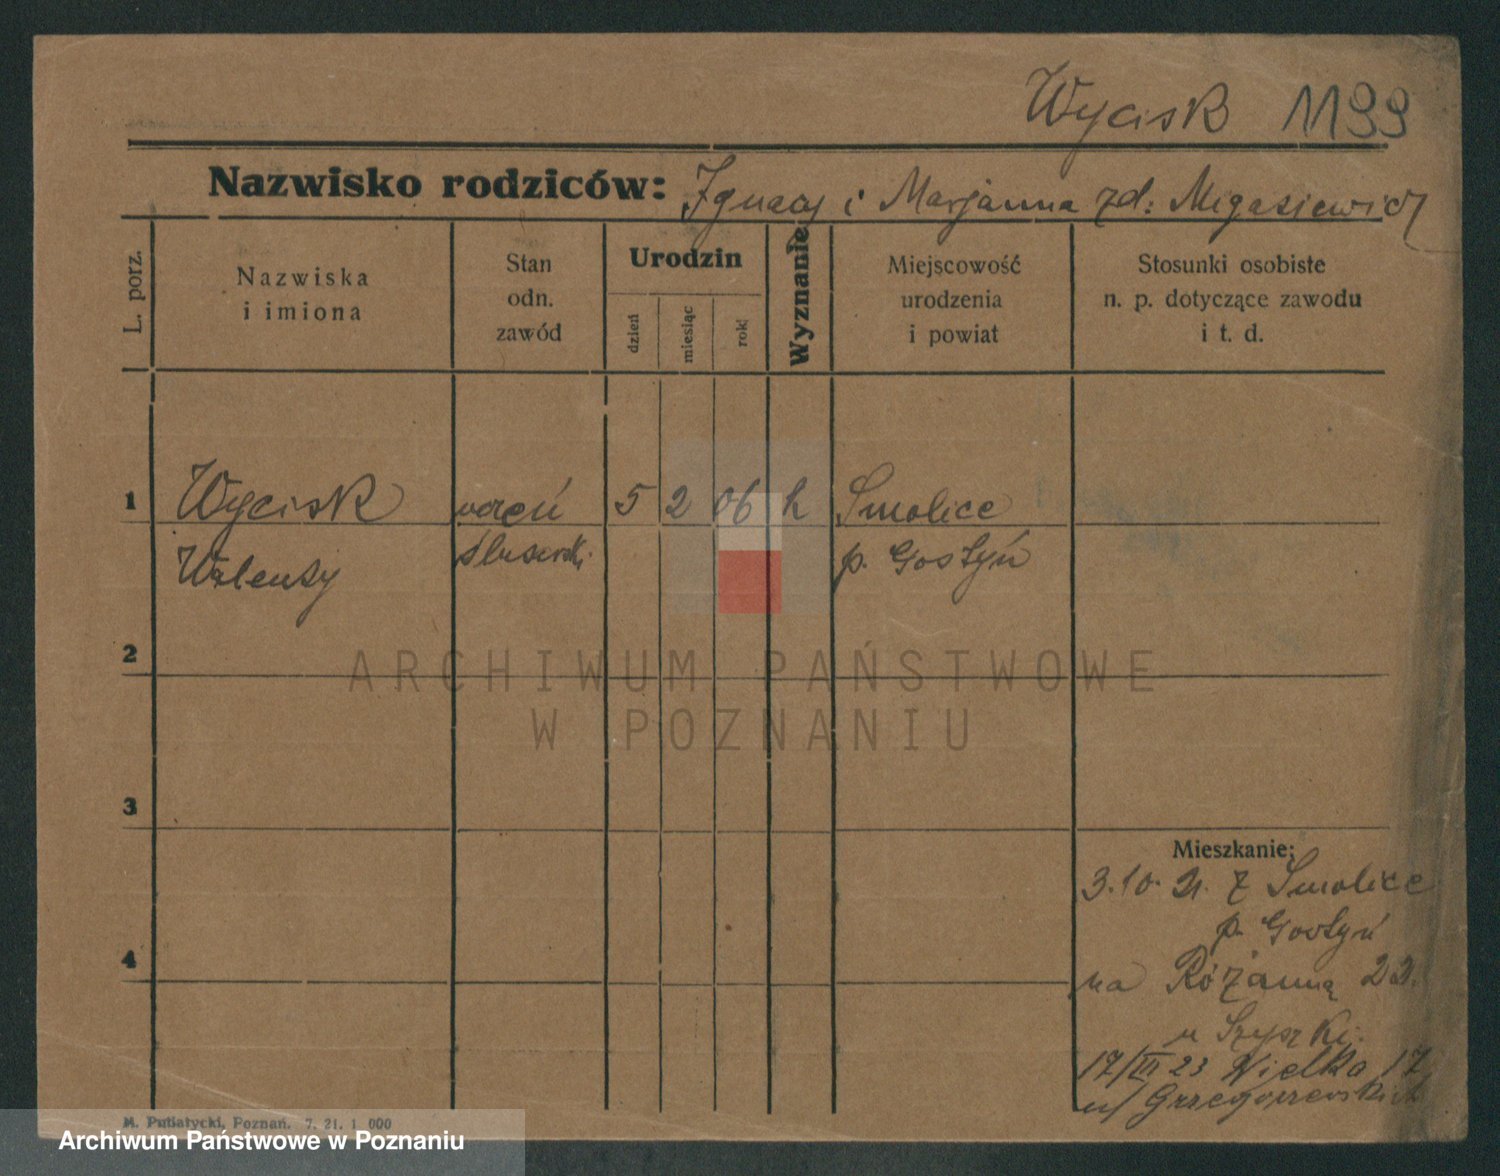 Wycisk 1199
Nazwisko rodziców: Ignacy i Marjanna zd: Migasiewicz
L. porz.
Nazwiska
i imiona
Stan
odn.
zawód
Urodzin
dzień
miesiąc
rok
Wyznanie
Miejscowość
urodzenia
i powiat
Stosunki osobiste
n. p. dotyczące zawodu
i t. d.
1 Wycisk uczeń 5 2 06 k Smolice
Walenty ślusarski p. Gostyń
2
ARCHIWUM PAŃSTWOWE
W POZNANIU
3
Mieszkanie:
3.10. 21. z Smolice
p. Gostyń
4
na Różanną 22.
u Szyszki.
17/III 23 Wielka 17
u/ Grzegorzewskich
M. Putiatycki, Poznań. 7. 21. 1 000
Archiwum Państwowe w Poznaniu